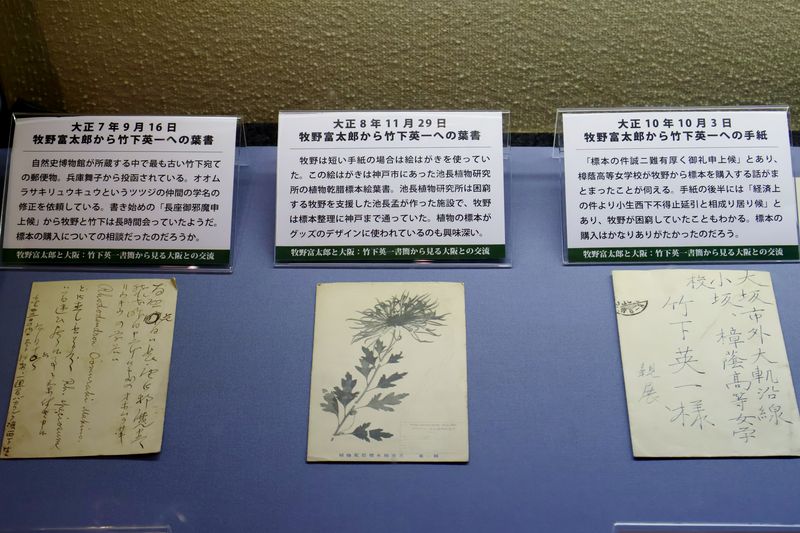 大正７年９月16日
牧野富太郎から竹下英一への葉書
自然史博物館が所蔵する中で最も古い竹下宛て
の郵便物。兵庫舞子から投函されている。オオム
ラサキリュウキュウというツツジの仲間の学名の
修正を依頼している。書き始めの「長座御邪魔申
上候」から牧野と竹下は長時間会っていたようだ。
標本の購入についての相談だったのだろうか。
牧野富太郎と大阪：竹下英一書簡から見る大阪との交流
大正８年11月29日
牧野富太郎から竹下英一への葉書
牧野は短い手紙の場合は絵はがきを使ってい
た。この絵はがきは神戸市にあった池長植物研究
所の植物乾腊標本絵葉書。池長植物研究所は困窮
する牧野を支援した池長孟が作った施設で、牧野
は標本整理に神戸まで通っていた。植物の標本が
グッズのデザインに使われているのも興味深い。
牧野富太郎と大阪：竹下英一書簡から見る大阪との交流
大正10年10月３日
牧野富太郎から竹下英一への手紙
「標本の件誠ニ難有厚く御礼申上候」とあり、
樟蔭高等女学校が牧野から標本を購入する話がま
とまったことが伺える。手紙の後半には「経済上
の件より小生西下不得止延引と相成り居り候」と
あり、牧野が困窮していたこともわかる。標本の
購入はかなりありがたかったのだろう。
牧野富太郎と大阪：竹下英一書簡から見る大阪との交流
Rhododendron Oomurasaki Makino
大坂市外大軌沿線
小坂、樟蔭高等女学
校
竹下英一様
親展